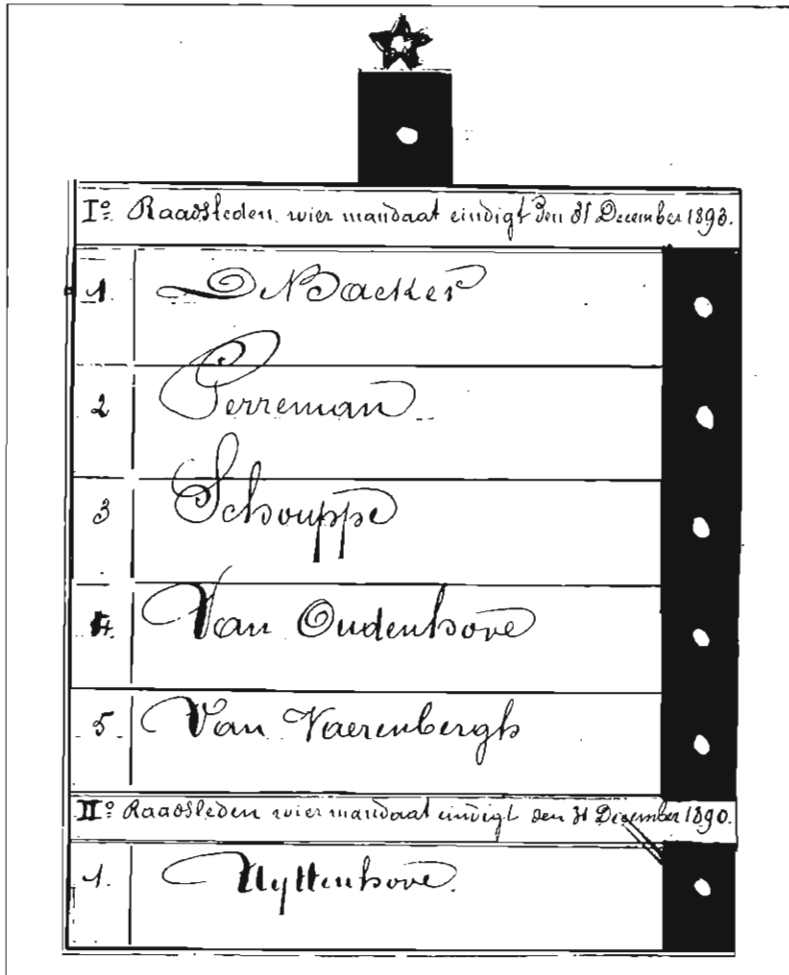 I° Raadsleden wier mandaat eindigt den 31 December 1893.
1. De Backer
2 Perreman
3 Schouppe
4. Van Oudenhove
5 Van Vaerenbergh
II° Raadsleden wier mandaat eindigt den 31 December 1890.
1. Uyttenhove.